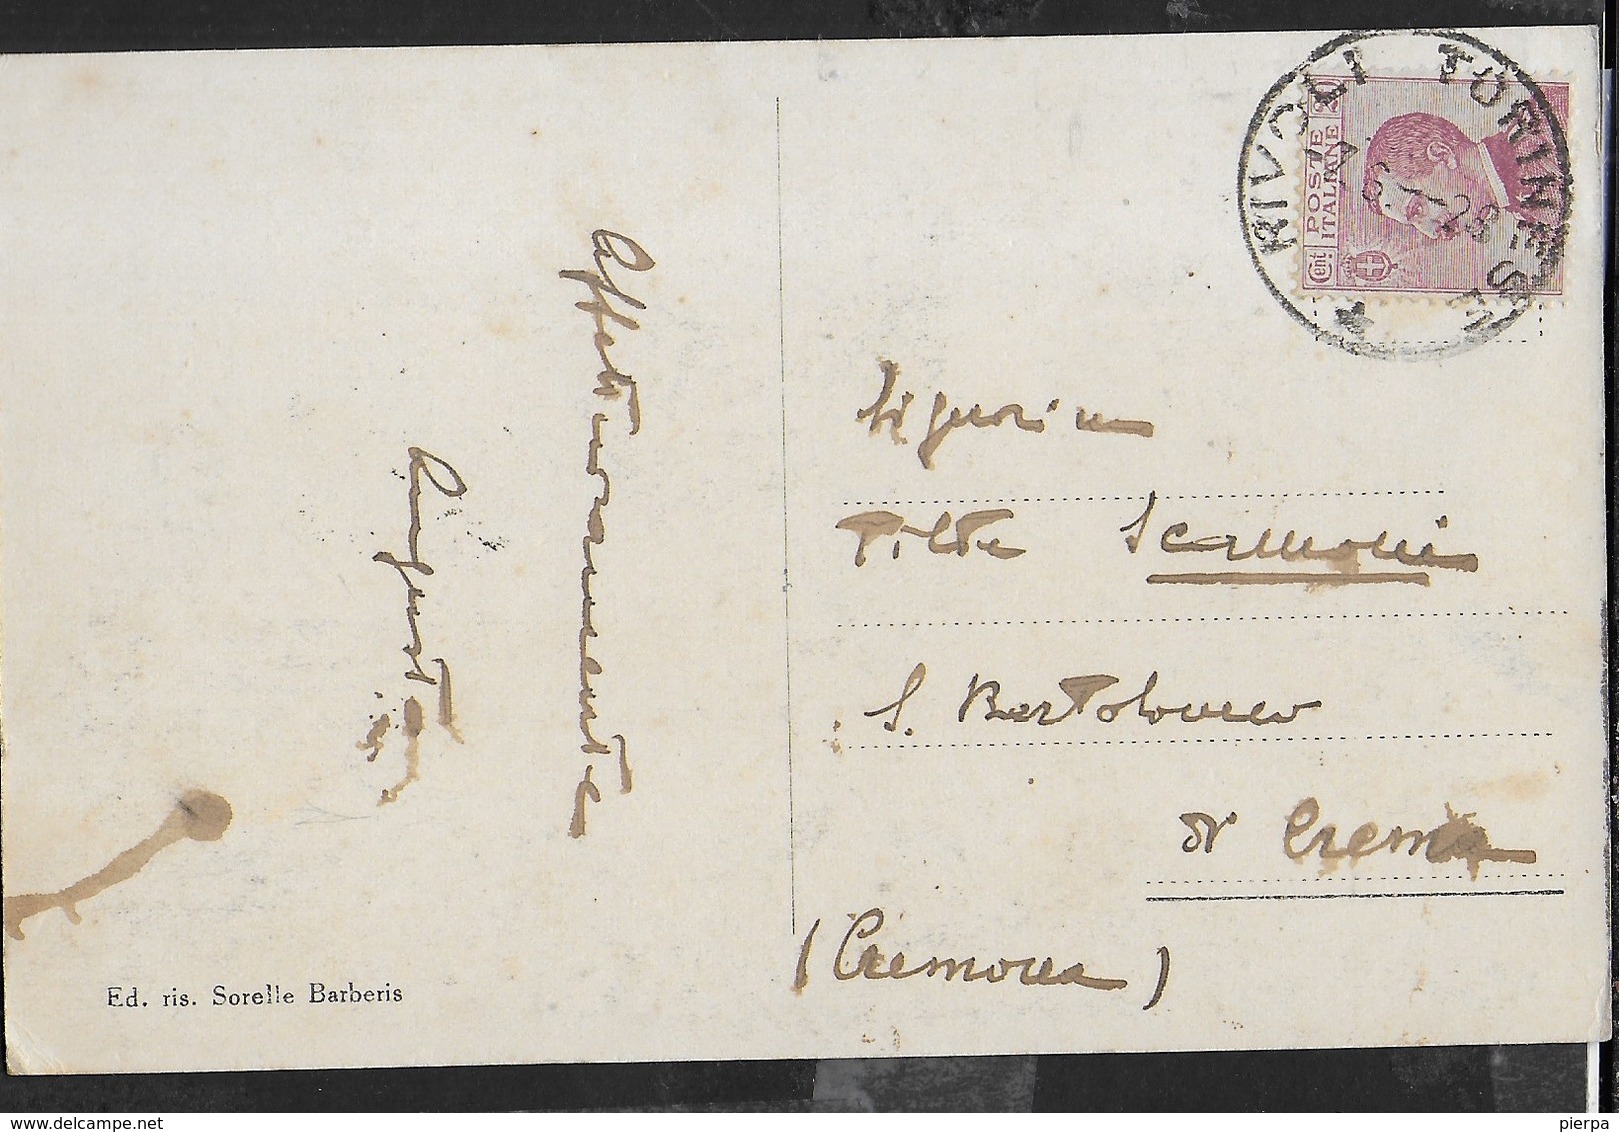 Affettuosamente
Augusta
Ed. ris. Sorelle Barberis
RIVOLI TORINESE
6.1-28
POSTE ITALIANE
Cent. 20
Signorina
Tilde Scarmoni
S. Bartolomeo
di Crema
(Cremona)
delcampe.net
pierpa